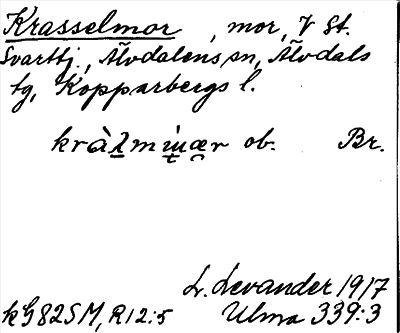 Krasselmor, mor, V St.
Svarttj., Älvdalens sn, Älvdals
tg, Kopparbergs l.
ob. Br.
L. Levander 1917
kG82SM, R12:5 Ulma 339:3